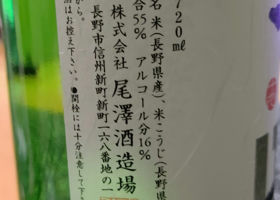 720㎖
名 米(長野県産)、米こうじ(長野県
合55% アルコール分16%
株式会社 尾澤酒造場
長野市信州新町新町一六八番地の一
から。
はお控え下さい。●開栓には十分注意して下